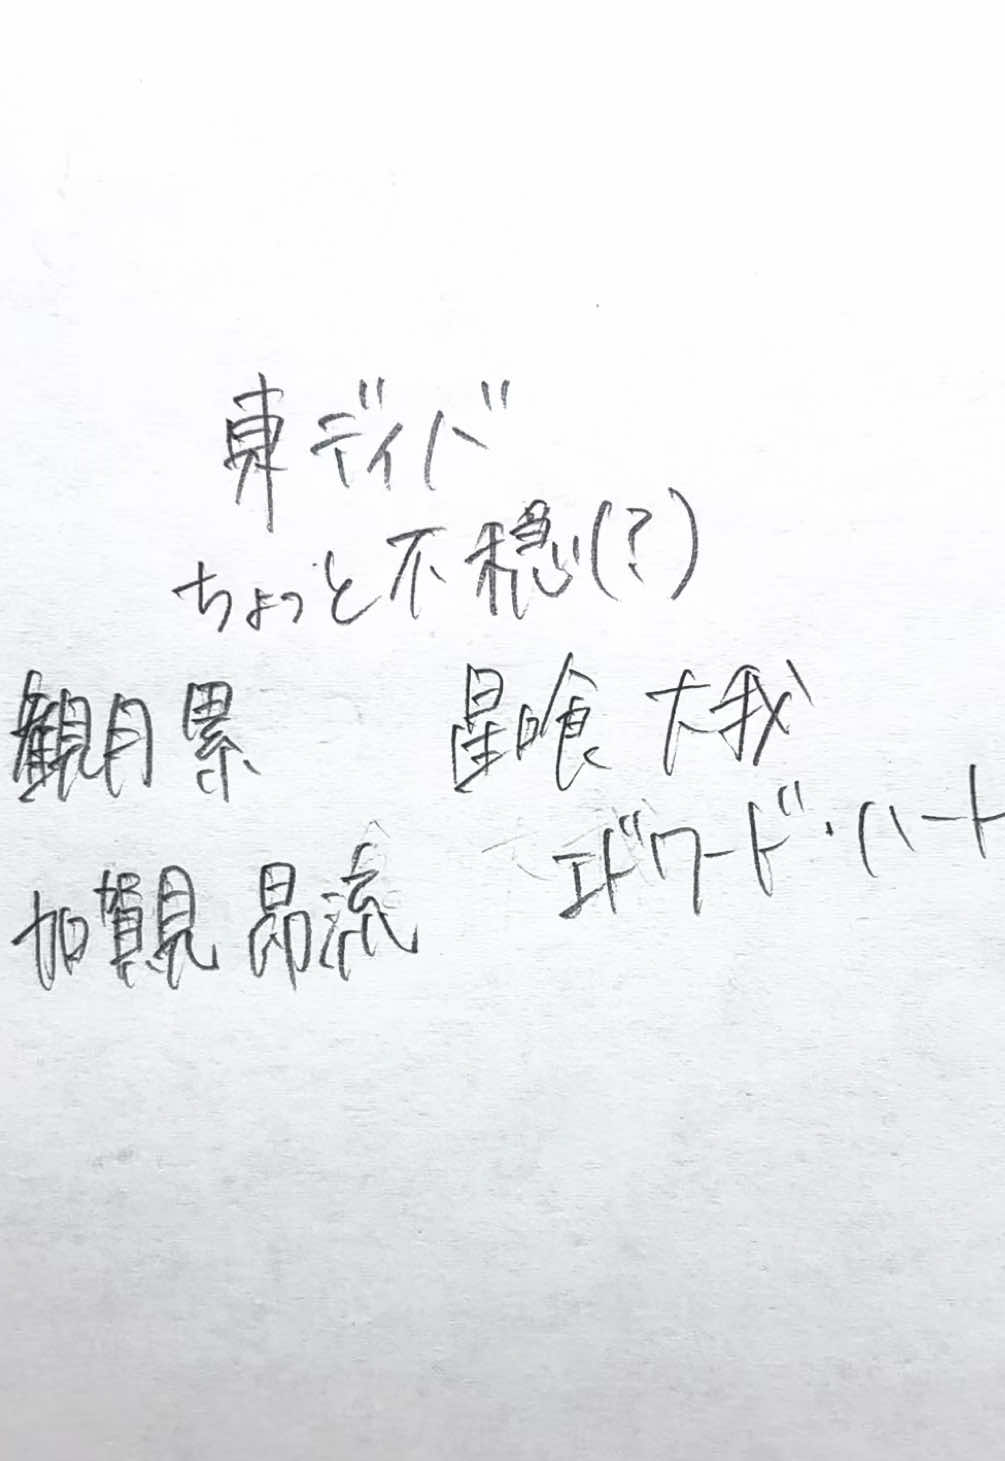 東ディバ
ちょっと不穏(?)
観月累 星喰 大我
エドワード・ハート
加賀見 昴流